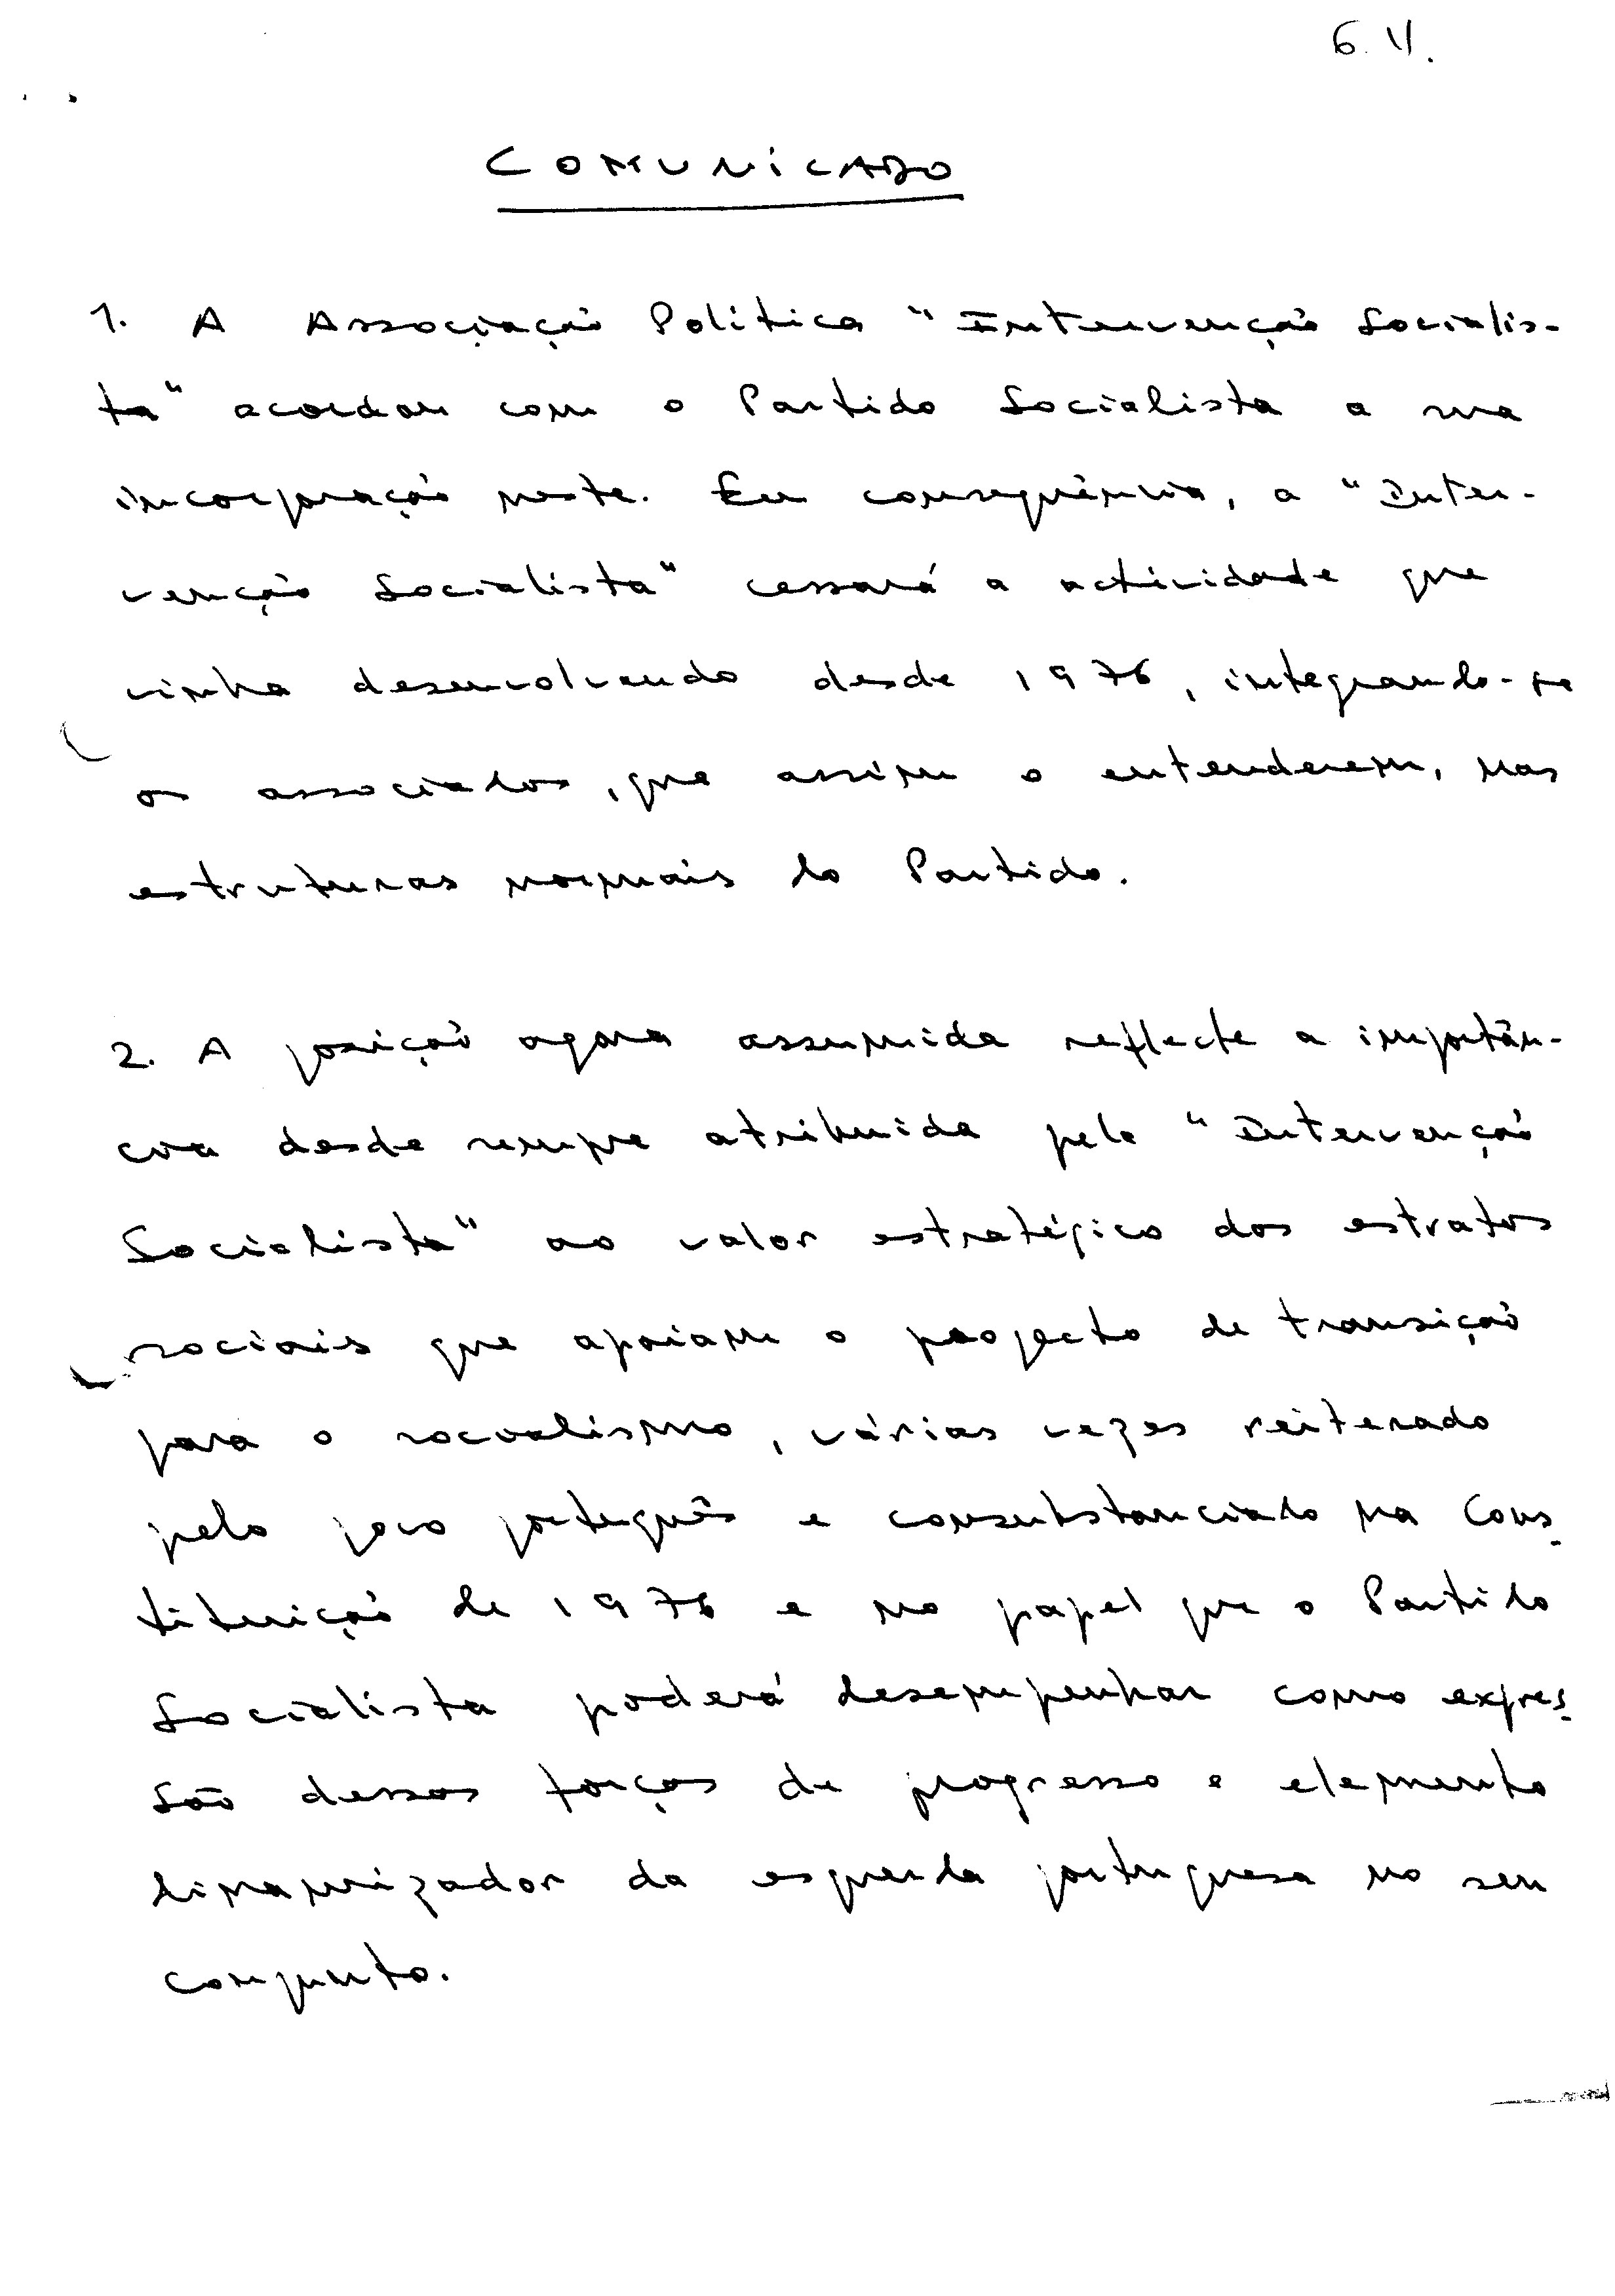 COMUNICADO
1. A Associação Política "Intervenção Socialis-
ta" acordou com o Partido Socialista a sua
incorporação neste. Em consequência, a "Inter-
venção Socialista" cessará a actividade que
vinha desenvolvendo desde 1976, integrando-se
os associados, que assim o entenderem, nas
estruturas normais do Partido.
2. A posição agora assumida reflecte a importân-
cia desde sempre atribuida pela "Intervenção
Socialista" ao valor estratégico dos estratos
sociais que apoiam o projecto de transição
para o socialismo, várias vezes reiterado
pelo povo português e consubstanciado na Cons-
tituição de 1976 e no papel que o Partido
Socialista poderá desempenhar como expres-
são dessas forças de progresso e elemento
dinamizador da esquerda portuguesa no seu
conjunto.